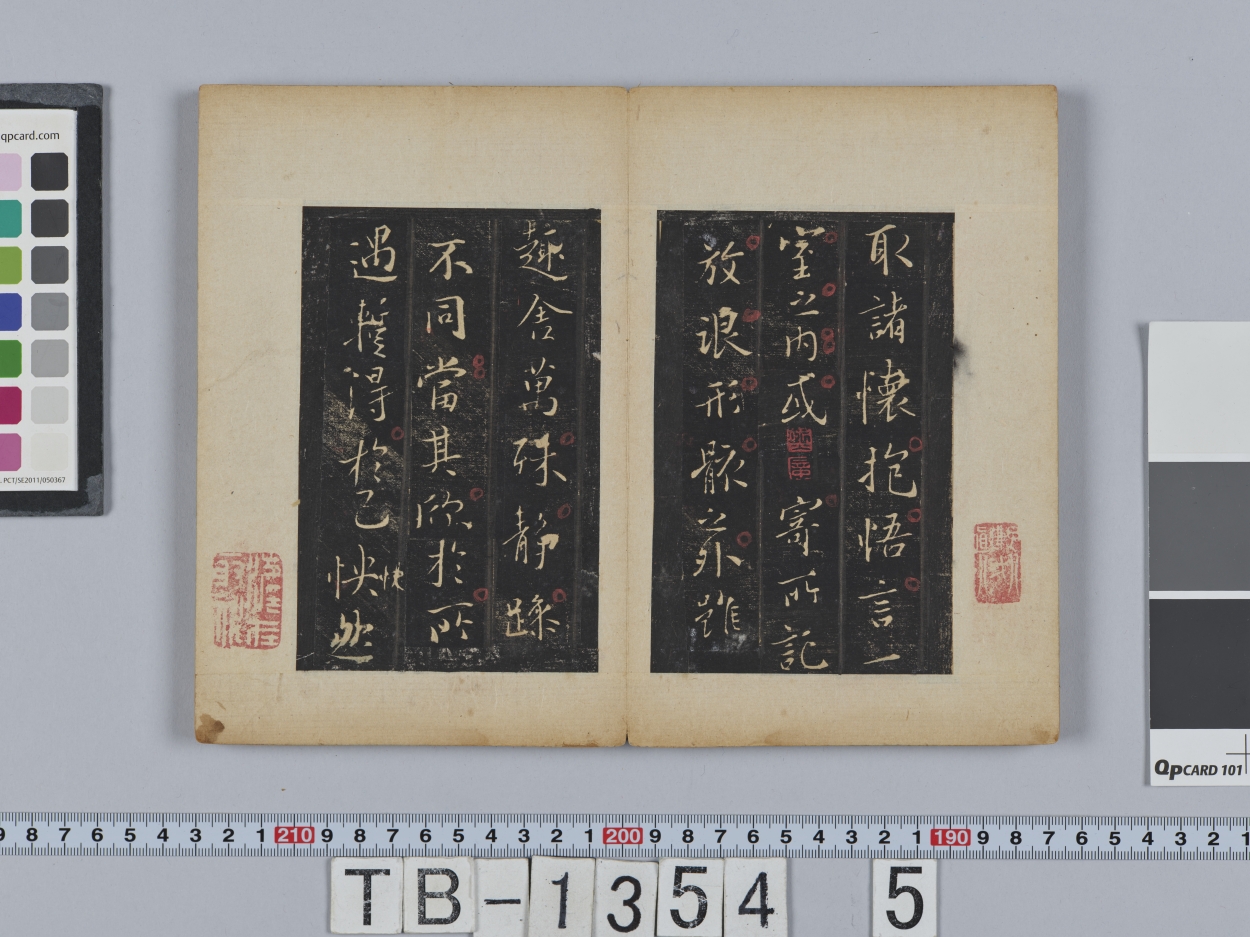 取諸懷抱悟言一
室之内或寄所託
放浪形骸之外雖
趣舍萬殊静躁
不同當其欣於所
遇蹔得於己怏然
快
qpcard.com
PCT/SE2011/050367
QPCARD 101
9 8 7 6 5 4 3 2 1 210 9 8 7 6 5 4 3 2 1 200 9 8 7 6 5 4 3 2 1 190 9 8 7 6 5 4 3 2 1
TB-1354 5